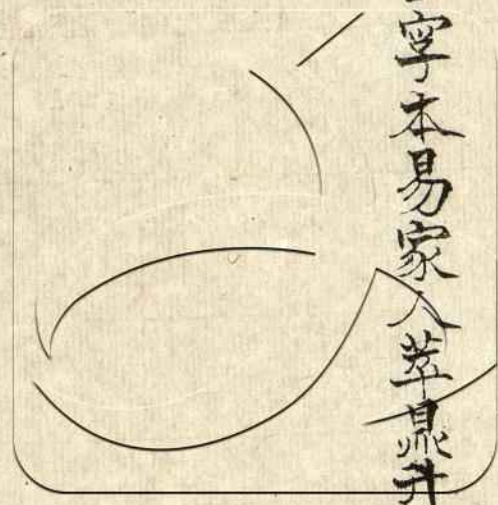 寧本易家人萃鼎升